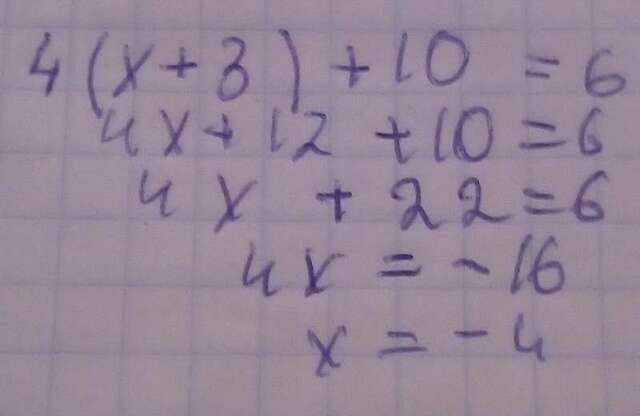 4(x+3)+10=6
4x+12+10=6
4x+22=6
4x=-16
x=-4